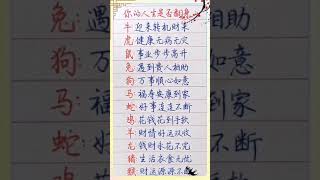 你的人生是否翻身
牛:迎来转机财来
虎:健康无病无灾
鼠:事业步步高升
兔:遇到贵人相助
狗:万事顺心如意
马:福寿安康到家
蛇:好事连连不断
鸡:花钱花到手软
羊:财情好运双收
龙:钱财永花不完
猪:生活衣食无忧
猴:财运源源不断
兔:
助
狗:
意
马:
家
蛇:
断